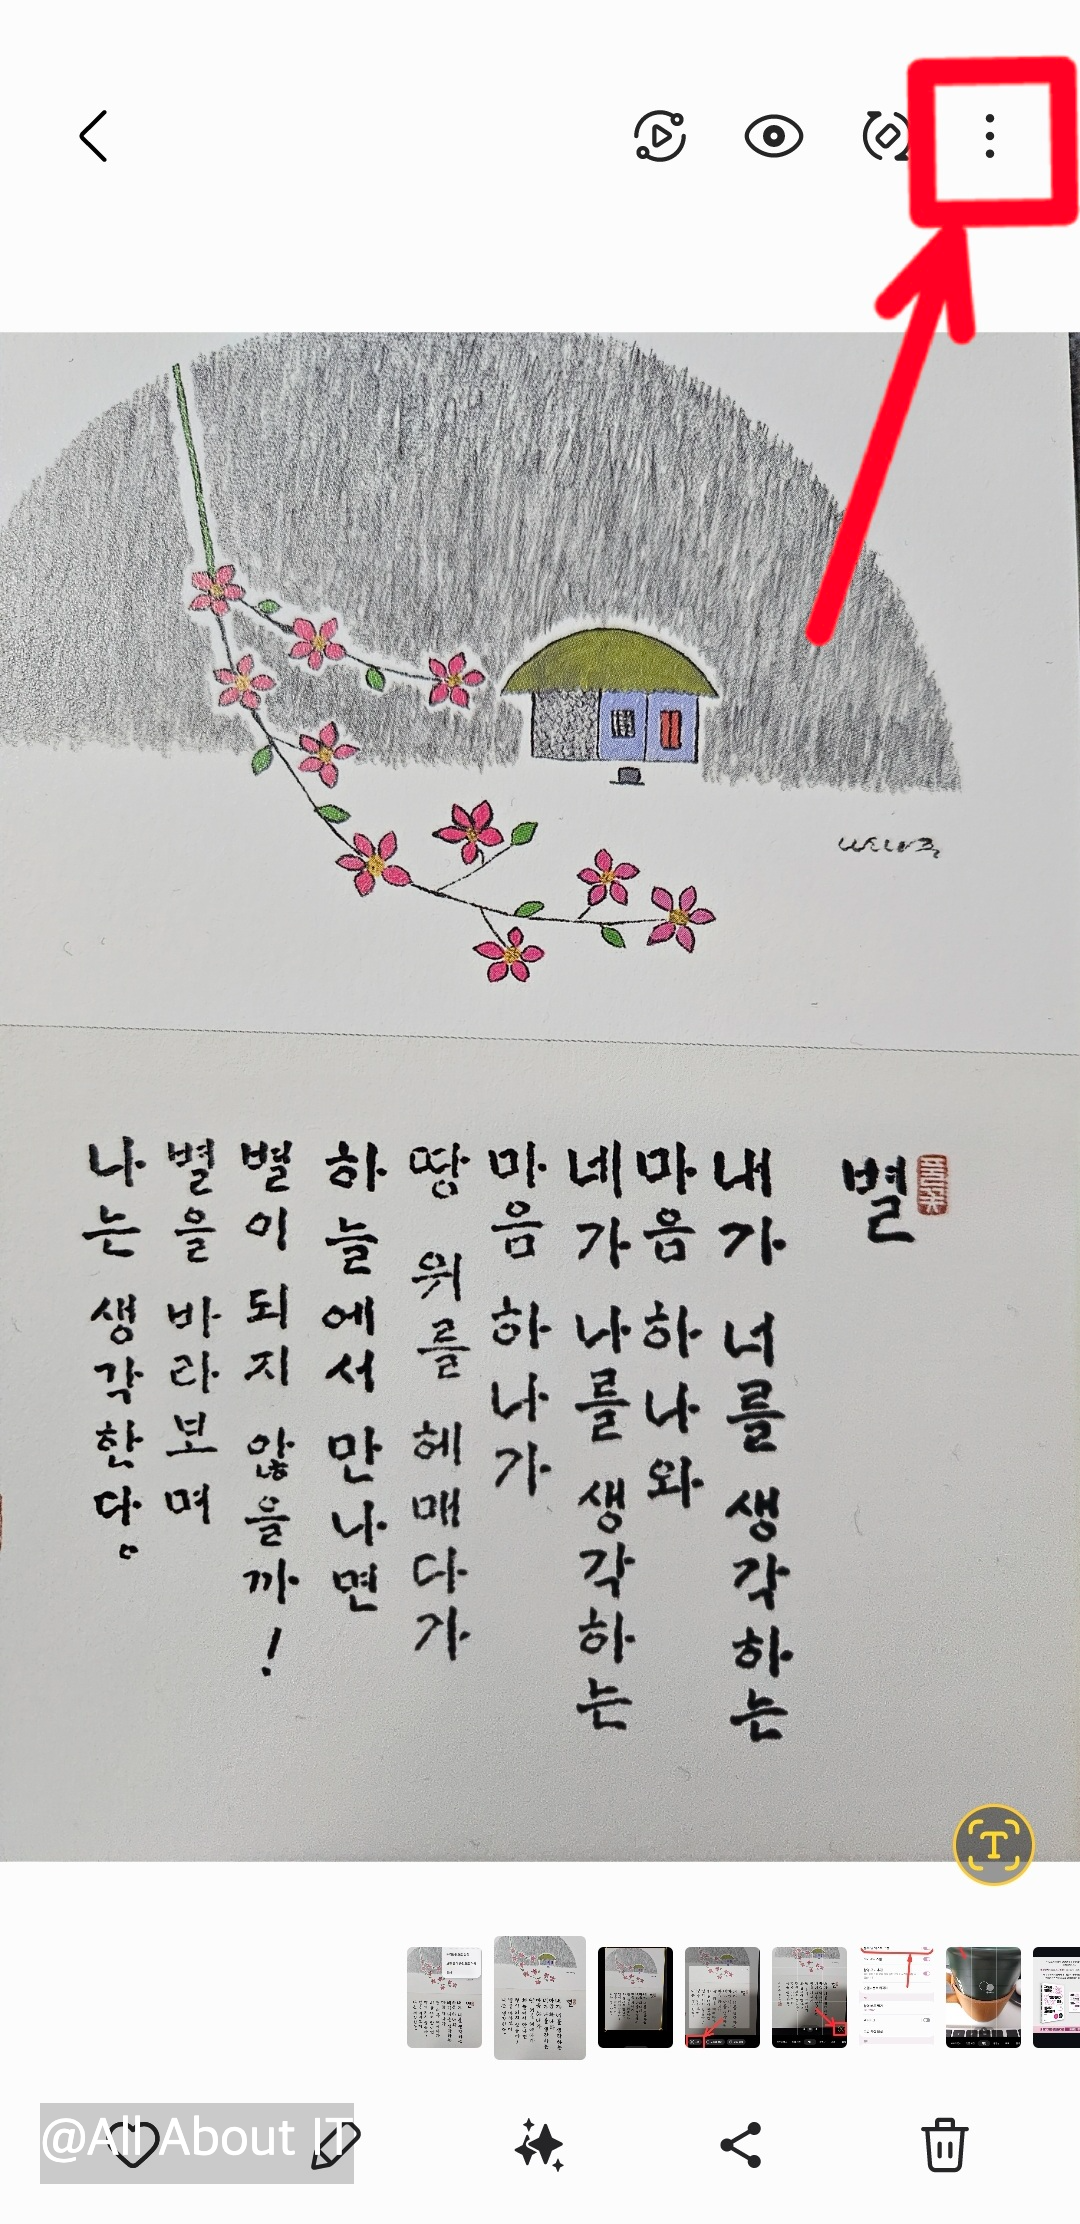 별
내가 너를 생각하는
마음 하나와
네가 나를 생각하는
마음 하나가
땅 위를 헤매다가
하늘에서 만나면
별이 되지 않을까!
별을 바라보며
나는 생각한다。
T
@All About IT